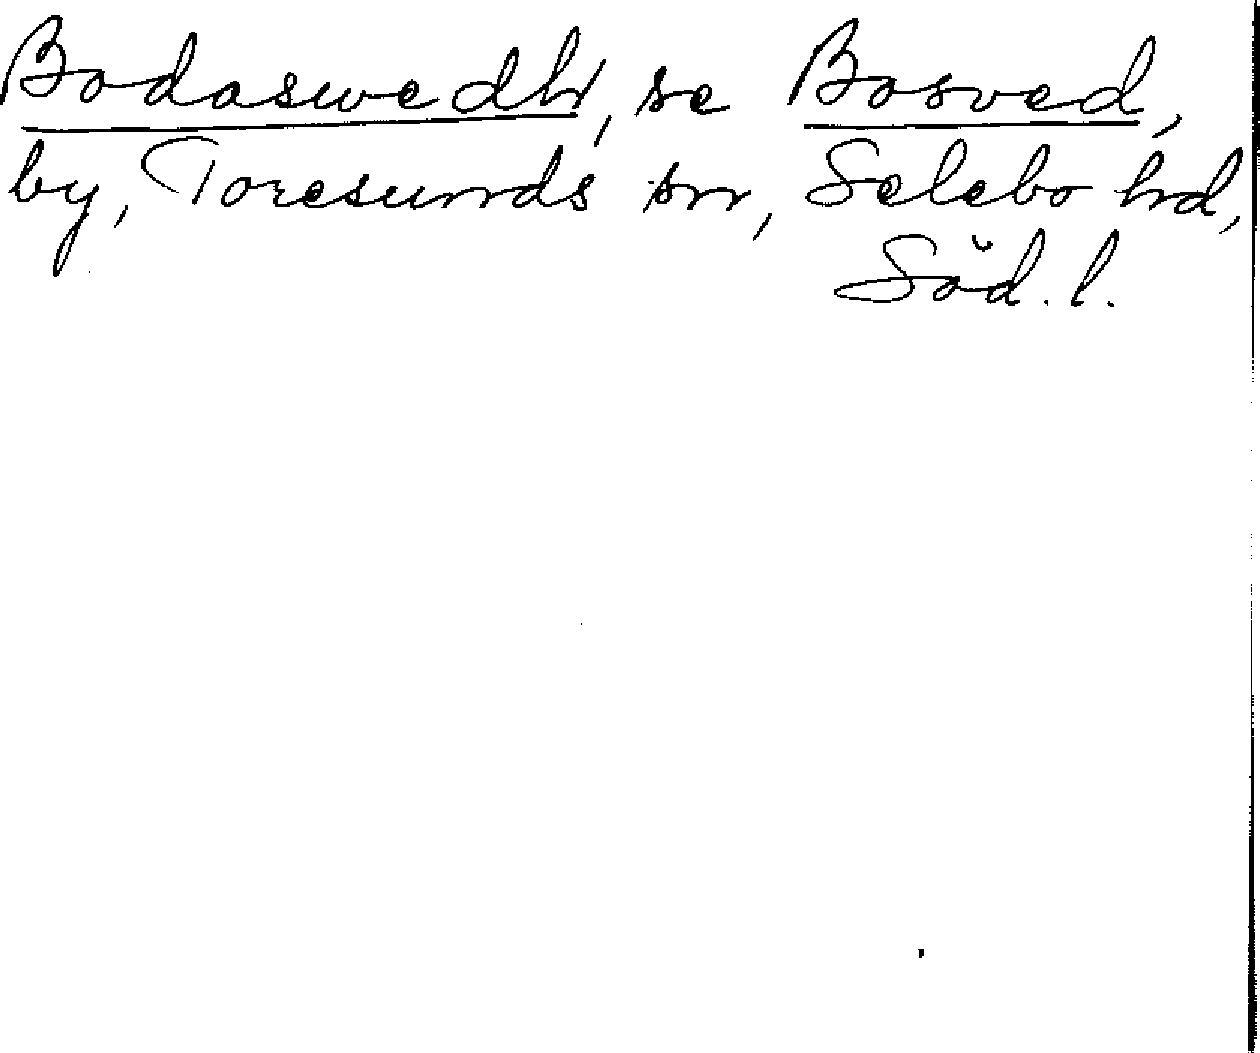 Bodaswedh, se Bosved,
by, Toresunds sn, Selebo hd,
Söd. l.